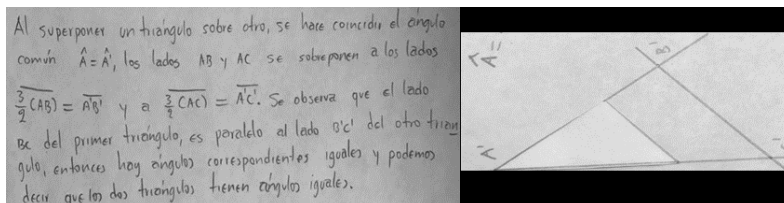 Al superponer un triángulo sobre otro, se hace coincidir el ángulo
común Â = Â', los lados AB y AC se sobreponen a los lados
3/2 (AB) = A'B' y a 3/2 (AC) = A'C'. Se observa que el lado
BC del primer triángulo, es paralelo al lado B'C' del otro trian
gulo, entonces hay ángulos correspondientes iguales y podemos
decir que los dos triángulos tienen ángulos iguales.
Â=
B'
A'